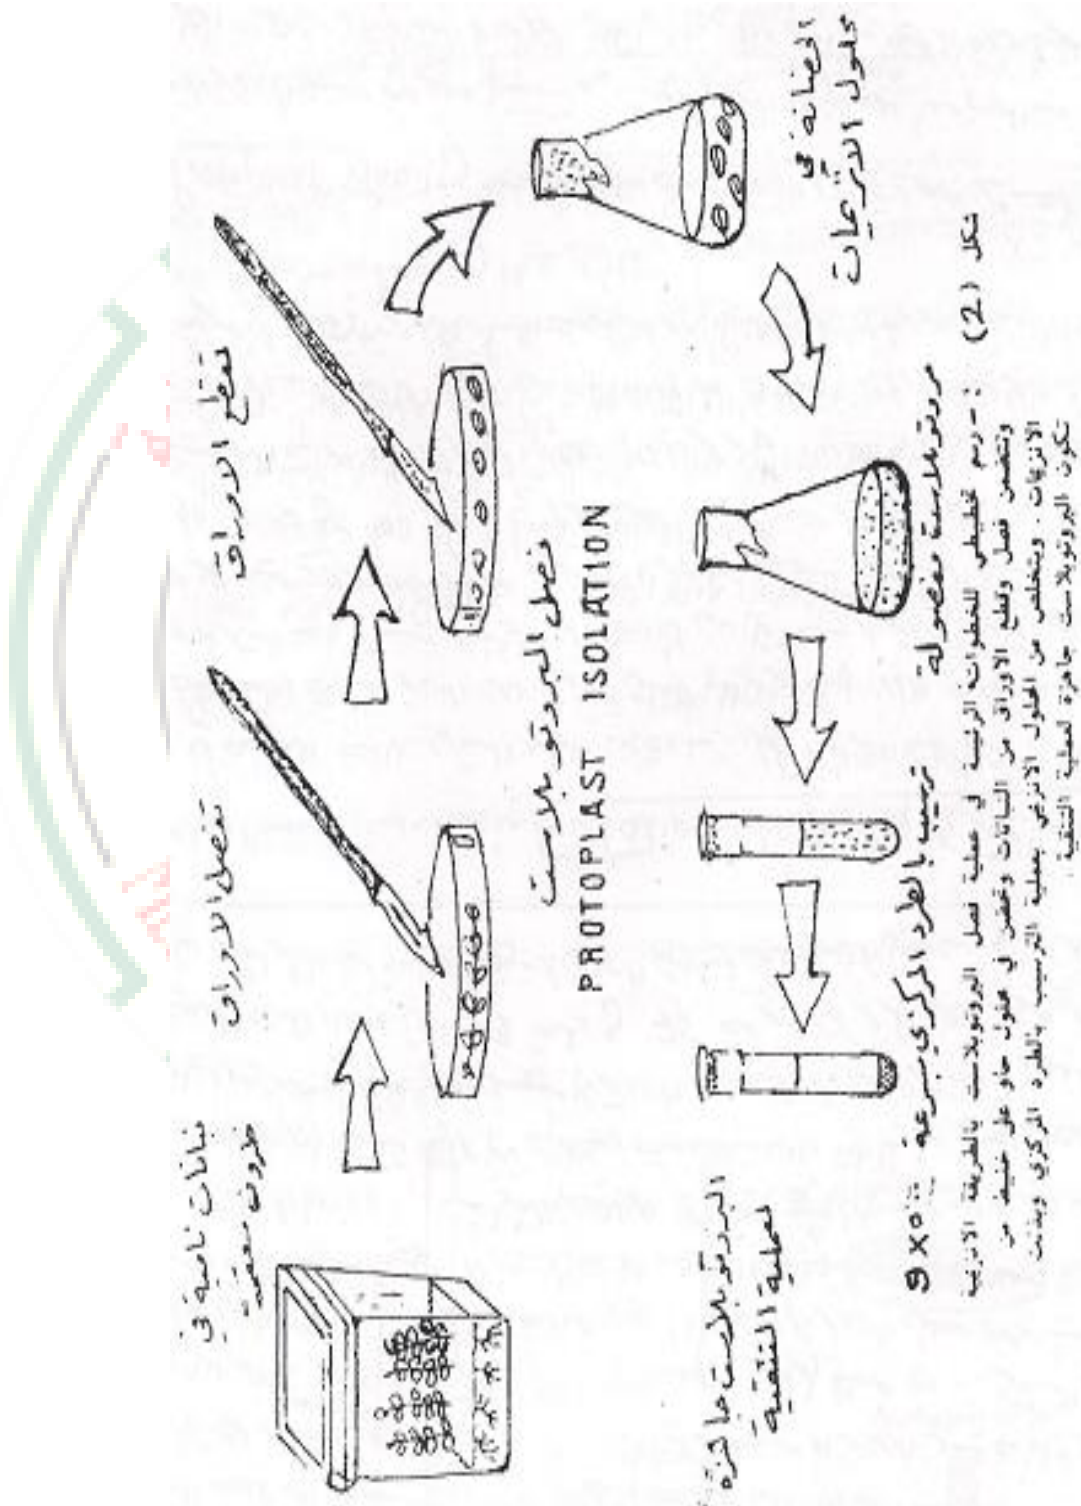 نباتات نامية في
ظروف معقمة
تفصل الاوراق
تقطع الاوراق
فصل البروتوبلاست
PROTOPLAST ISOLATION
الحضانة في
محلول الانزيمات
بروتوبلاست مفصولة
ترسيب بالطرد المركزي بسرعة
البروتوبلاست جاهزة
لعملية التنقية
شكل (2) : - رسم تخطيطي للخطوات الرئيسة في عملية فصل البروتوبلاست بالطريقة الانزيمية
وتتضمن فصل وقطع الاوراق من النباتات وتحضن في محلول حاو على خليط من
الانزيمات . ويتخلص من المحلول الانزيمي بعملية الترسيب بالطرد المركزي وبذلك
تكون البروتوبلاست جاهزة لعملية التنقية .